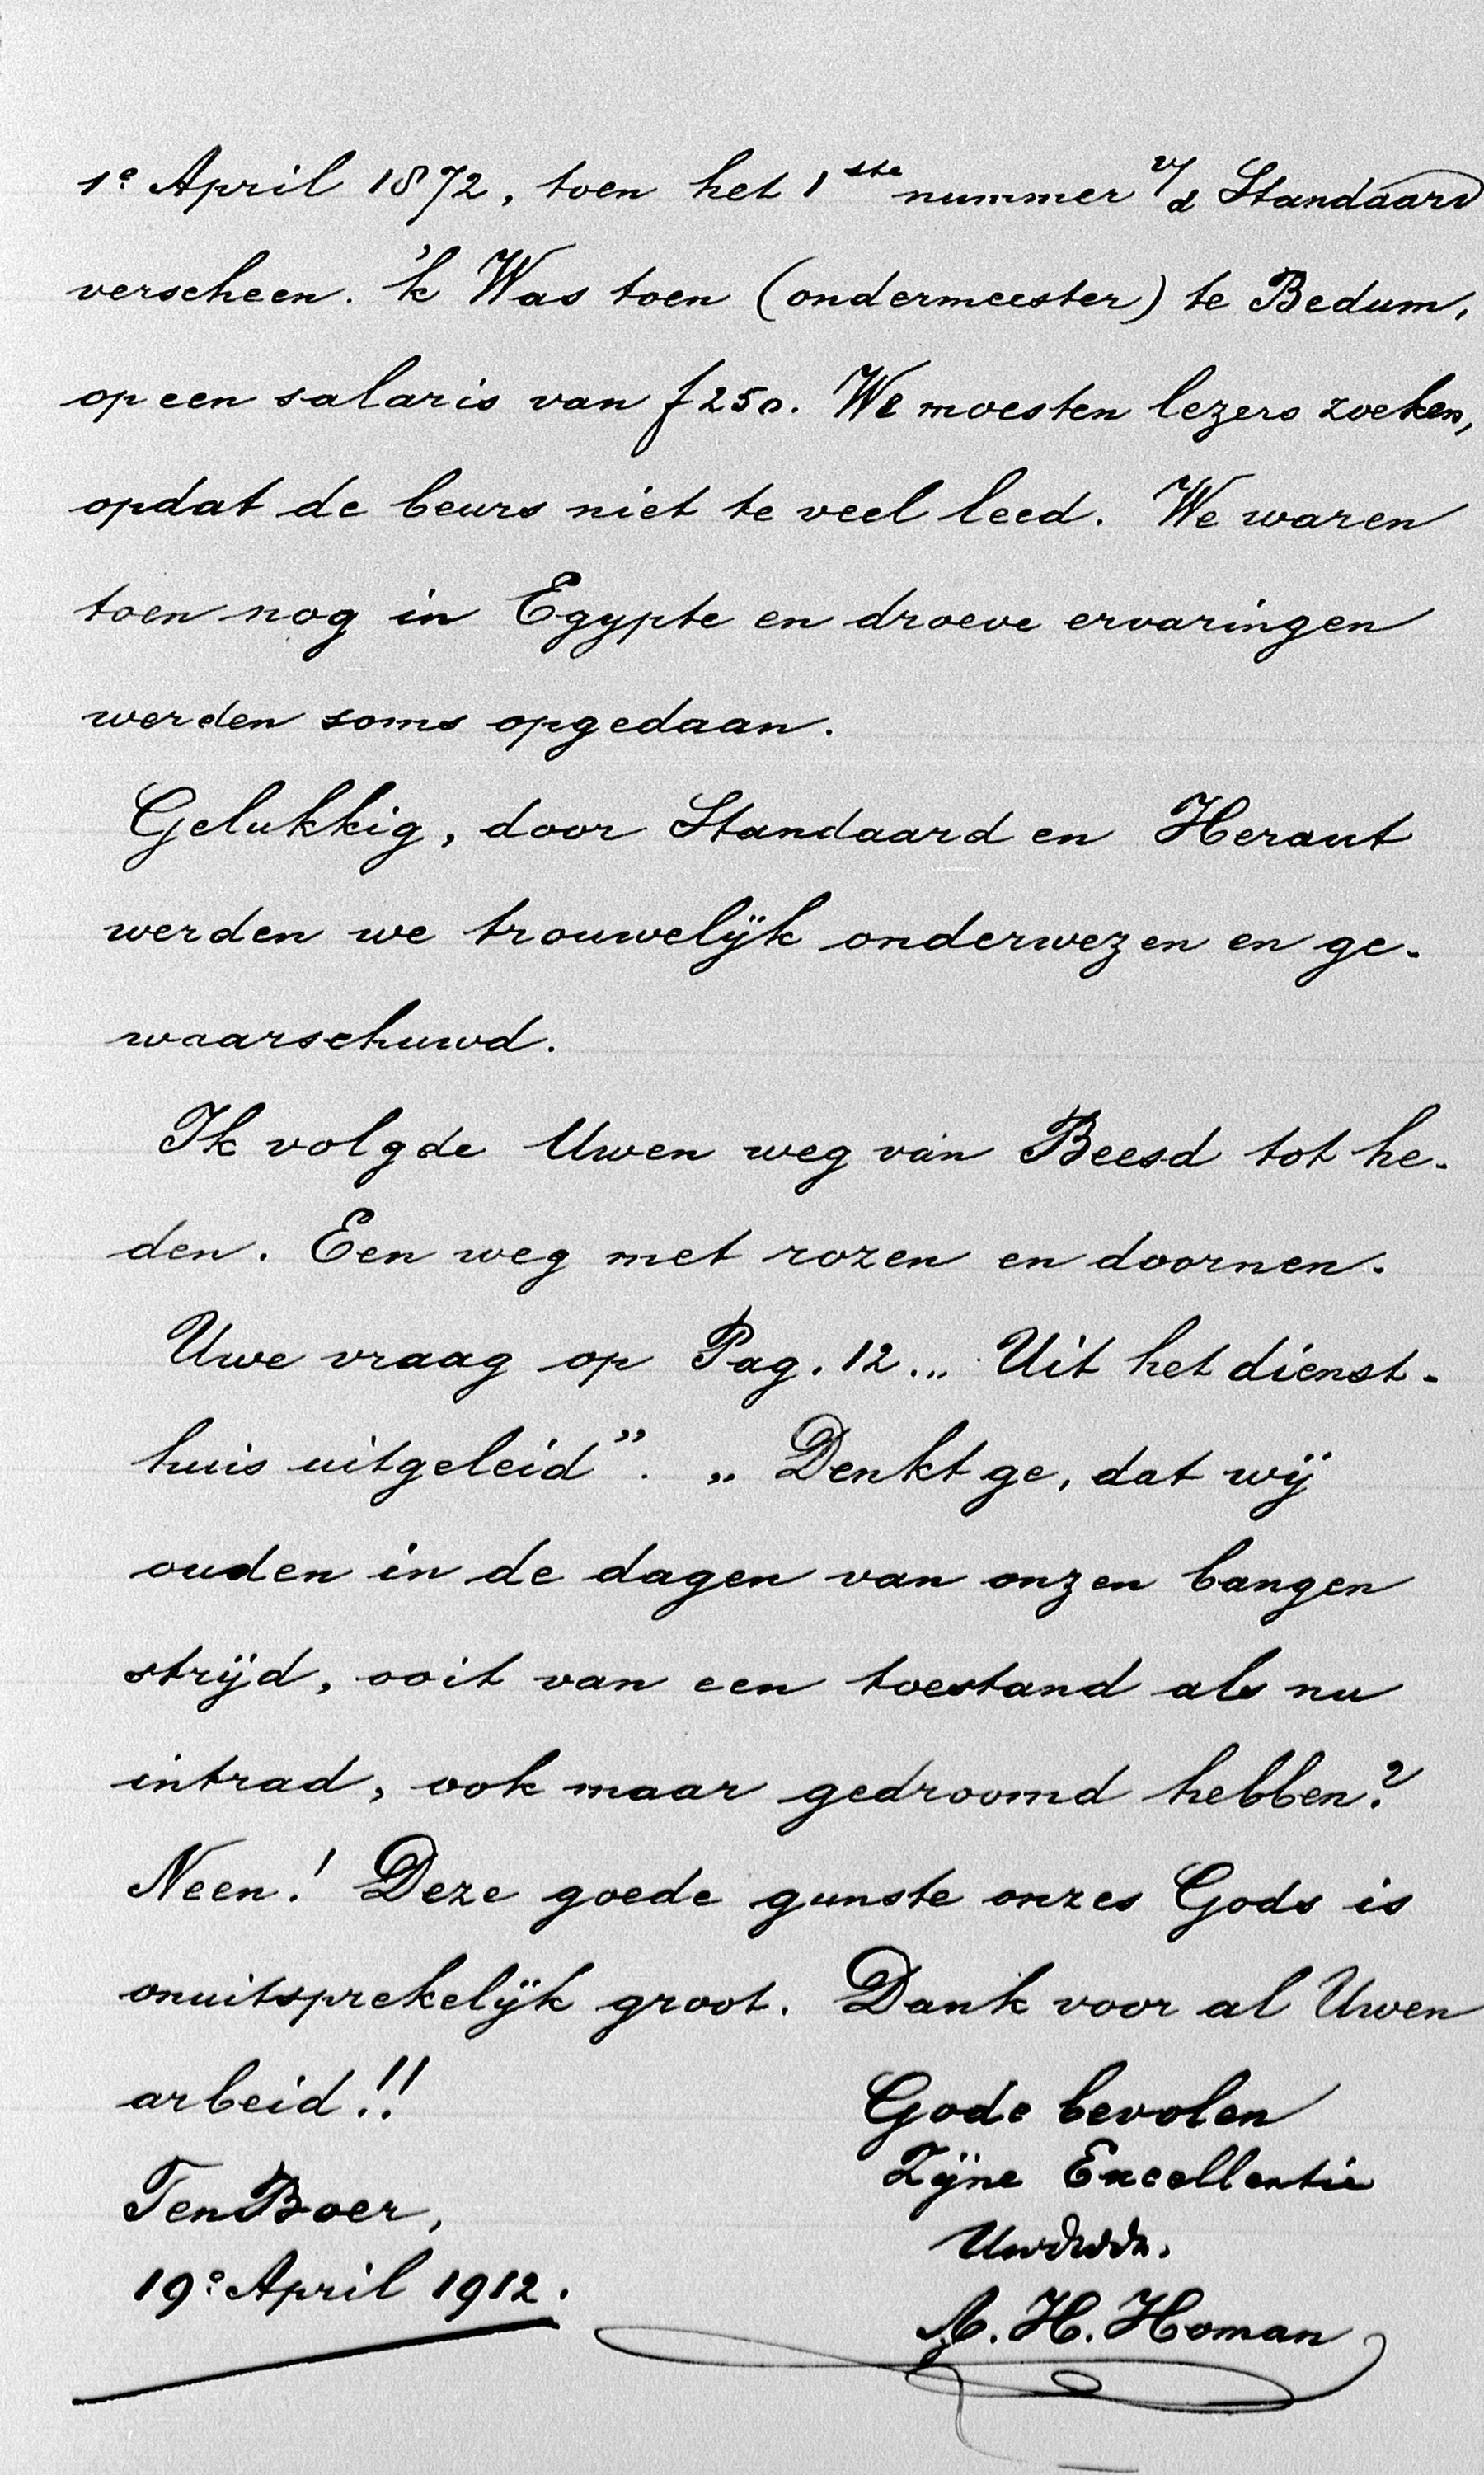 1e April 1872, toen het 1ste nummer v/d Standaard
verscheen. 'k Was toen (ondermeester) te Bedum,
op een salaris van f 250. We moesten lezers zoeken,
opdat de beurs niet te veel leed. We waren
toen nog in Egypte en droeve ervaringen
werden soms opgedaan.
Gelukkig, door Standaard en Heraut
werden we trouwelijk onderwezen en ge-
waarschuwd.
Ik volgde Uwen weg van Beesd tot he-
den. Een weg met rozen en doornen.
Uwe vraag op Pag. 12. „Uit het dienst-
huis uitgeleid”. „Denkt ge, dat wij
ouden in de dagen van onzen bangen
strijd, ooit van een toestand als nu
intrad, ook maar gedroomd hebben?
Neen! Deze goede gunste onzes Gods is
onuitsprekelijk groot. Dank voor al Uwen
arbeid!!
Gode bevolen
Zijne Excellentie
Ten Boer,
19e April 1912.
A. H. Homan